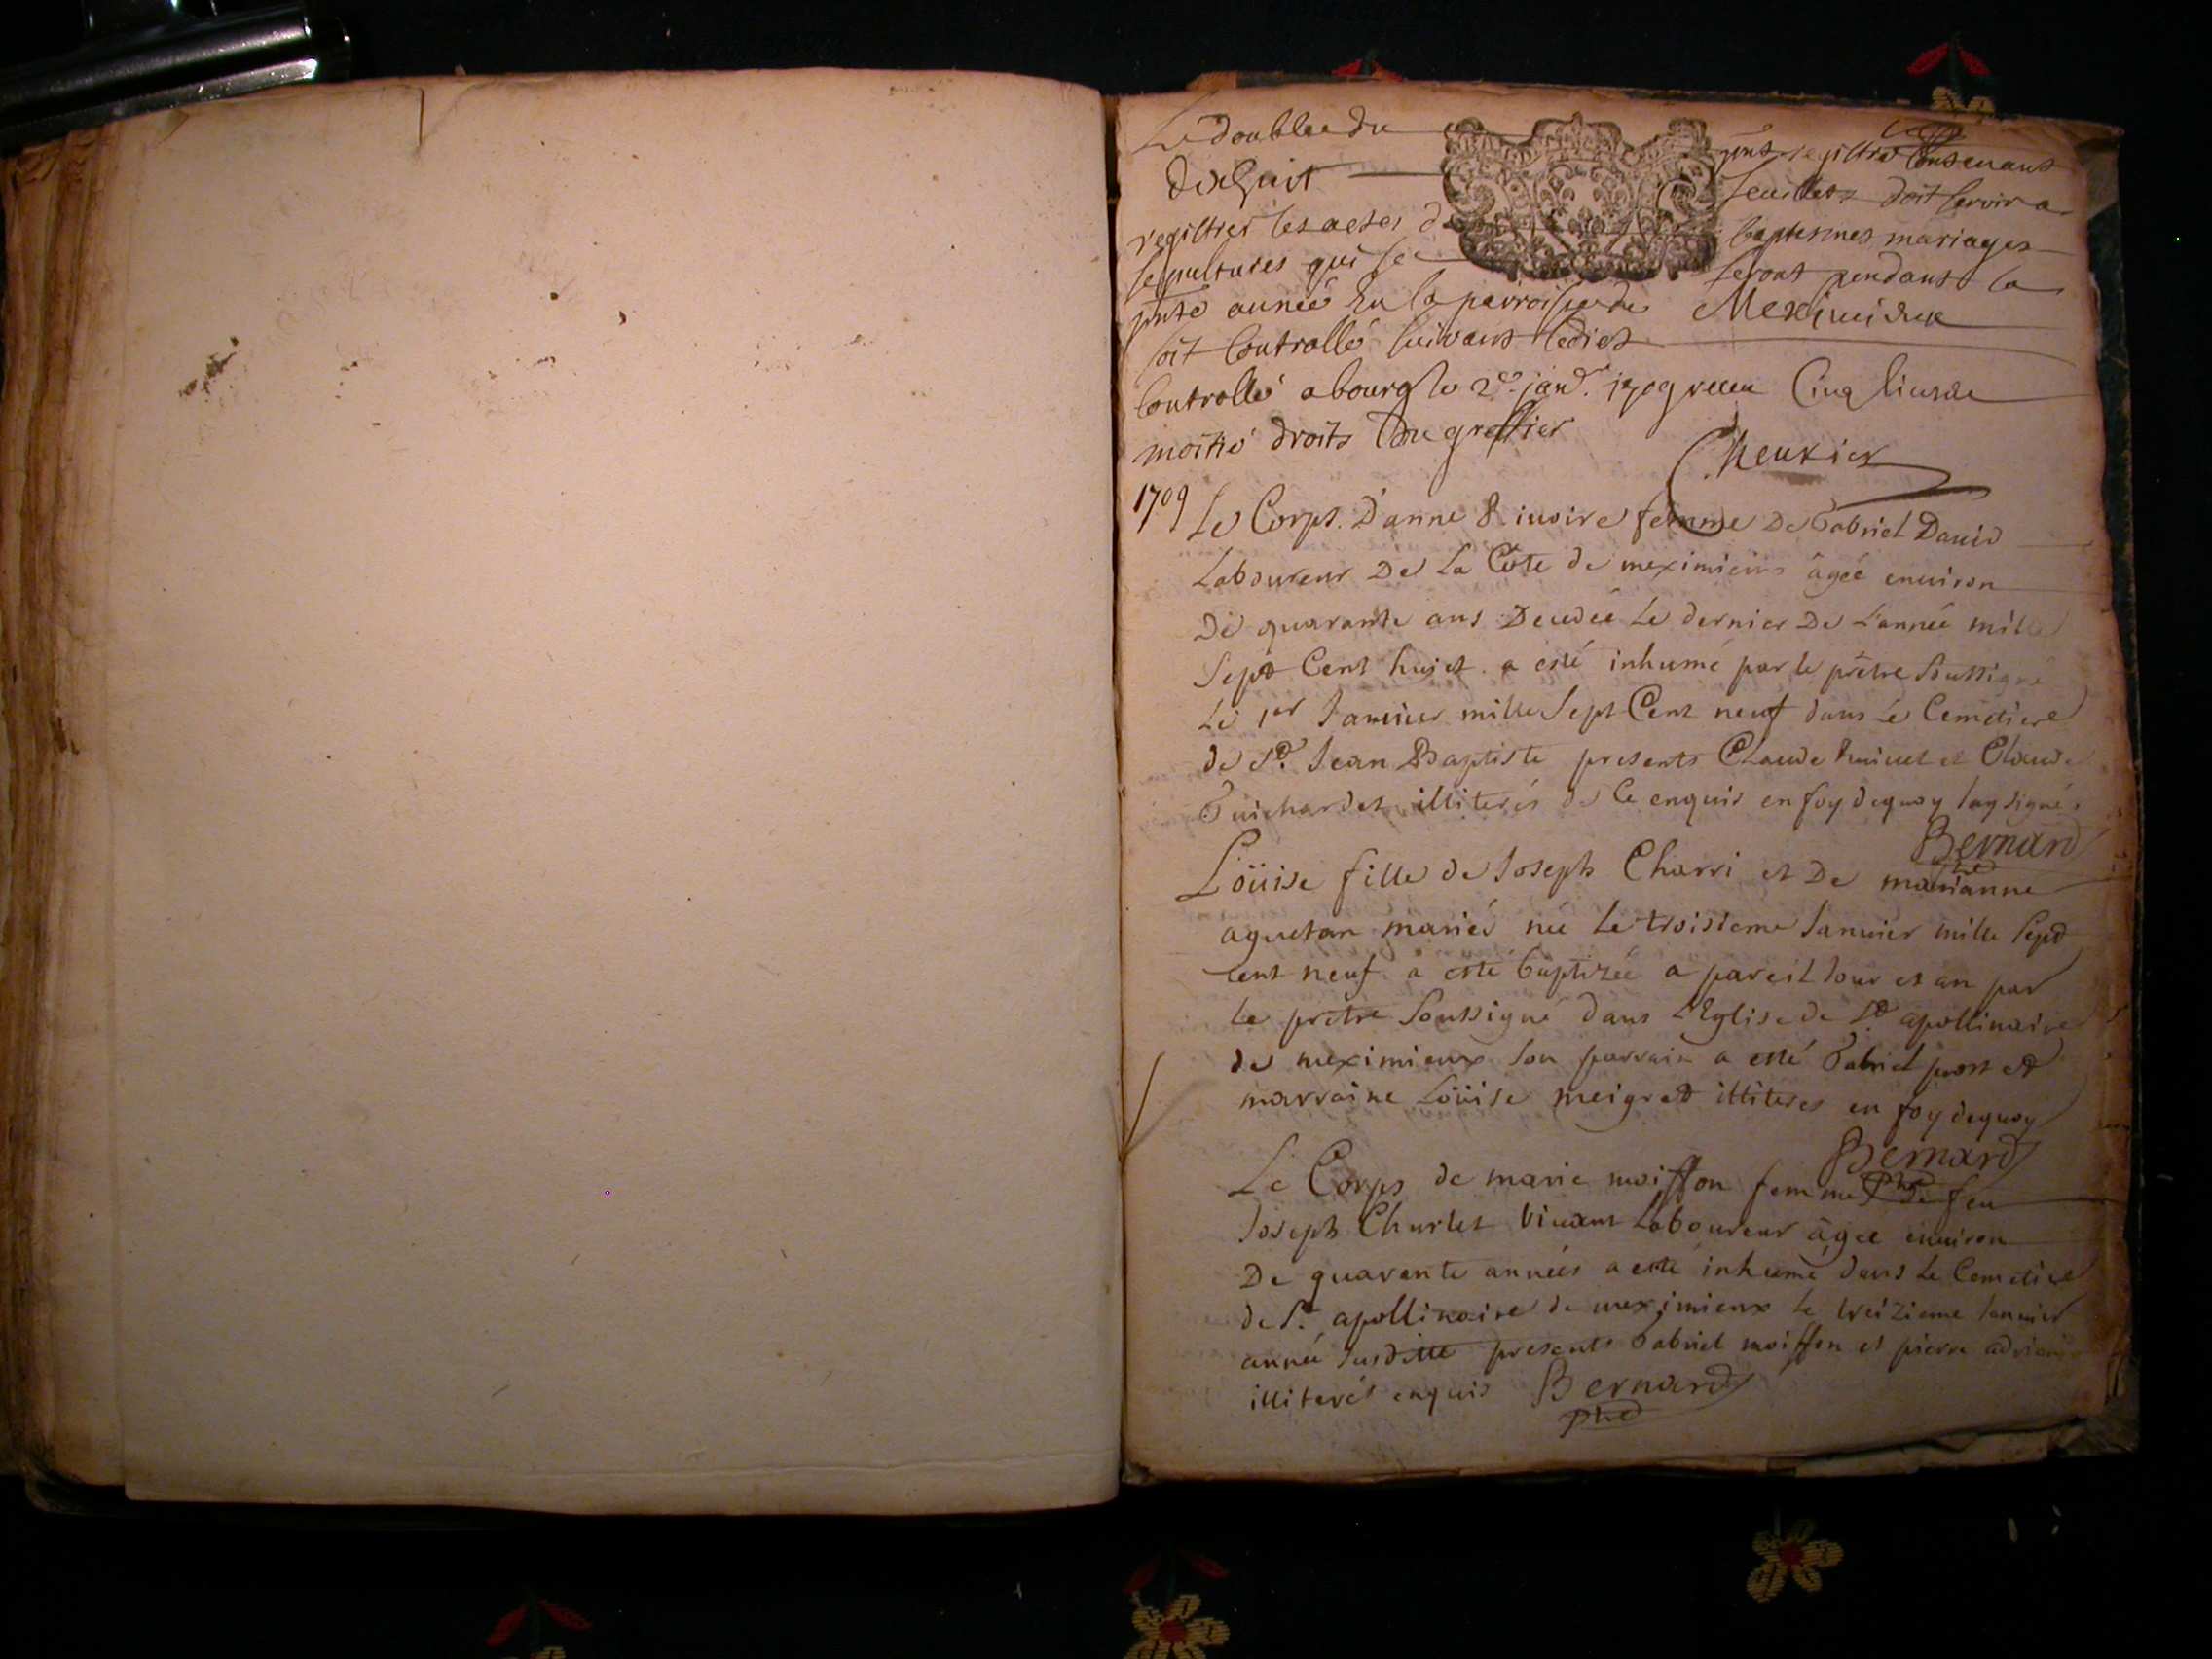 Le double du pnt registre Contenant
dixhuit feuillets doit servir a
registrer les actes d baptesmes mariages
sepultures qui se feront pendant la
pnte année En la parroisse de Meximieux
soit Controllé suivant ledict
Controllé a bourg le 2e janr. 1709 receu Cinq livres
moitié droits du greffier
1709 Le Corps D'anne femme De Gabriel David
Laboureur De La Côte de meximieux âgée environ
De quarante ans Decedée Le dernier De L'année mille
Sept Cent huict a esté inhumé par le prêtre Soussigné
Le 1er Januier mille Sept Cent neuf dans Le Cemetiere
de St. Jean Baptiste presents Claude et Claude
Guichardet illiterés de Ce enquis en foy dequoy Jay signé
Bernard
Loüise fille de Joseph Charri et De marianne
aguetan mariés née Le troisieme Januier mille Sept
Cent neuf a esté baptizée a pareil Jour et an par
Le prêtre Soussigné dans L'Eglise de St apollinaire
de meximieux Son parrain a esté Gabriel prost et
marraine Loüise meigret illiterés en foy dequoy
Bernard
Le Corps de marie moiffon femme de feu
Joseph Charlet Viuant Laboureur âgée enuiron
De quarente années a esté inhumé dans Le Cemetiere
de St. apollinaire de meximieux le treizieme Januier
année Susditte presents Gabriel moiffon et pierre
illiterés enquis Bernard